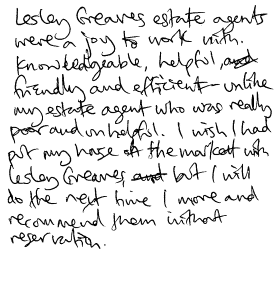 Lesley Greaves estate agents
were a joy to work with.
Knowledgeable, helpful, and
friendly and efficient - unlike
my estate agent who was really
poor and unhelpful. I wish I had
put my house on the market with
Lesley Greaves, and but I will
do the next time I move and
recommend them without
reservation.